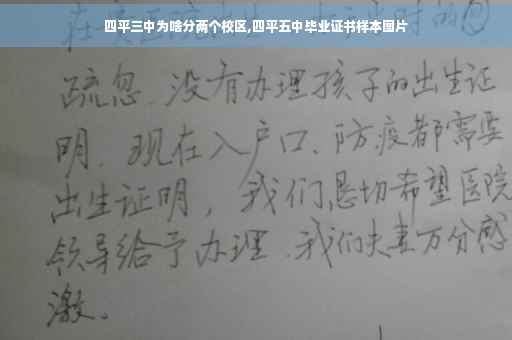 四平三中为啥分两个校区,四平五中毕业证书样本图片
疏忽、没有办理孩子的出生证
明、现在入户口、防疫都需要
出生证明，我们恳切希望医院
领导给予办理、我们夫妻万分感
激。